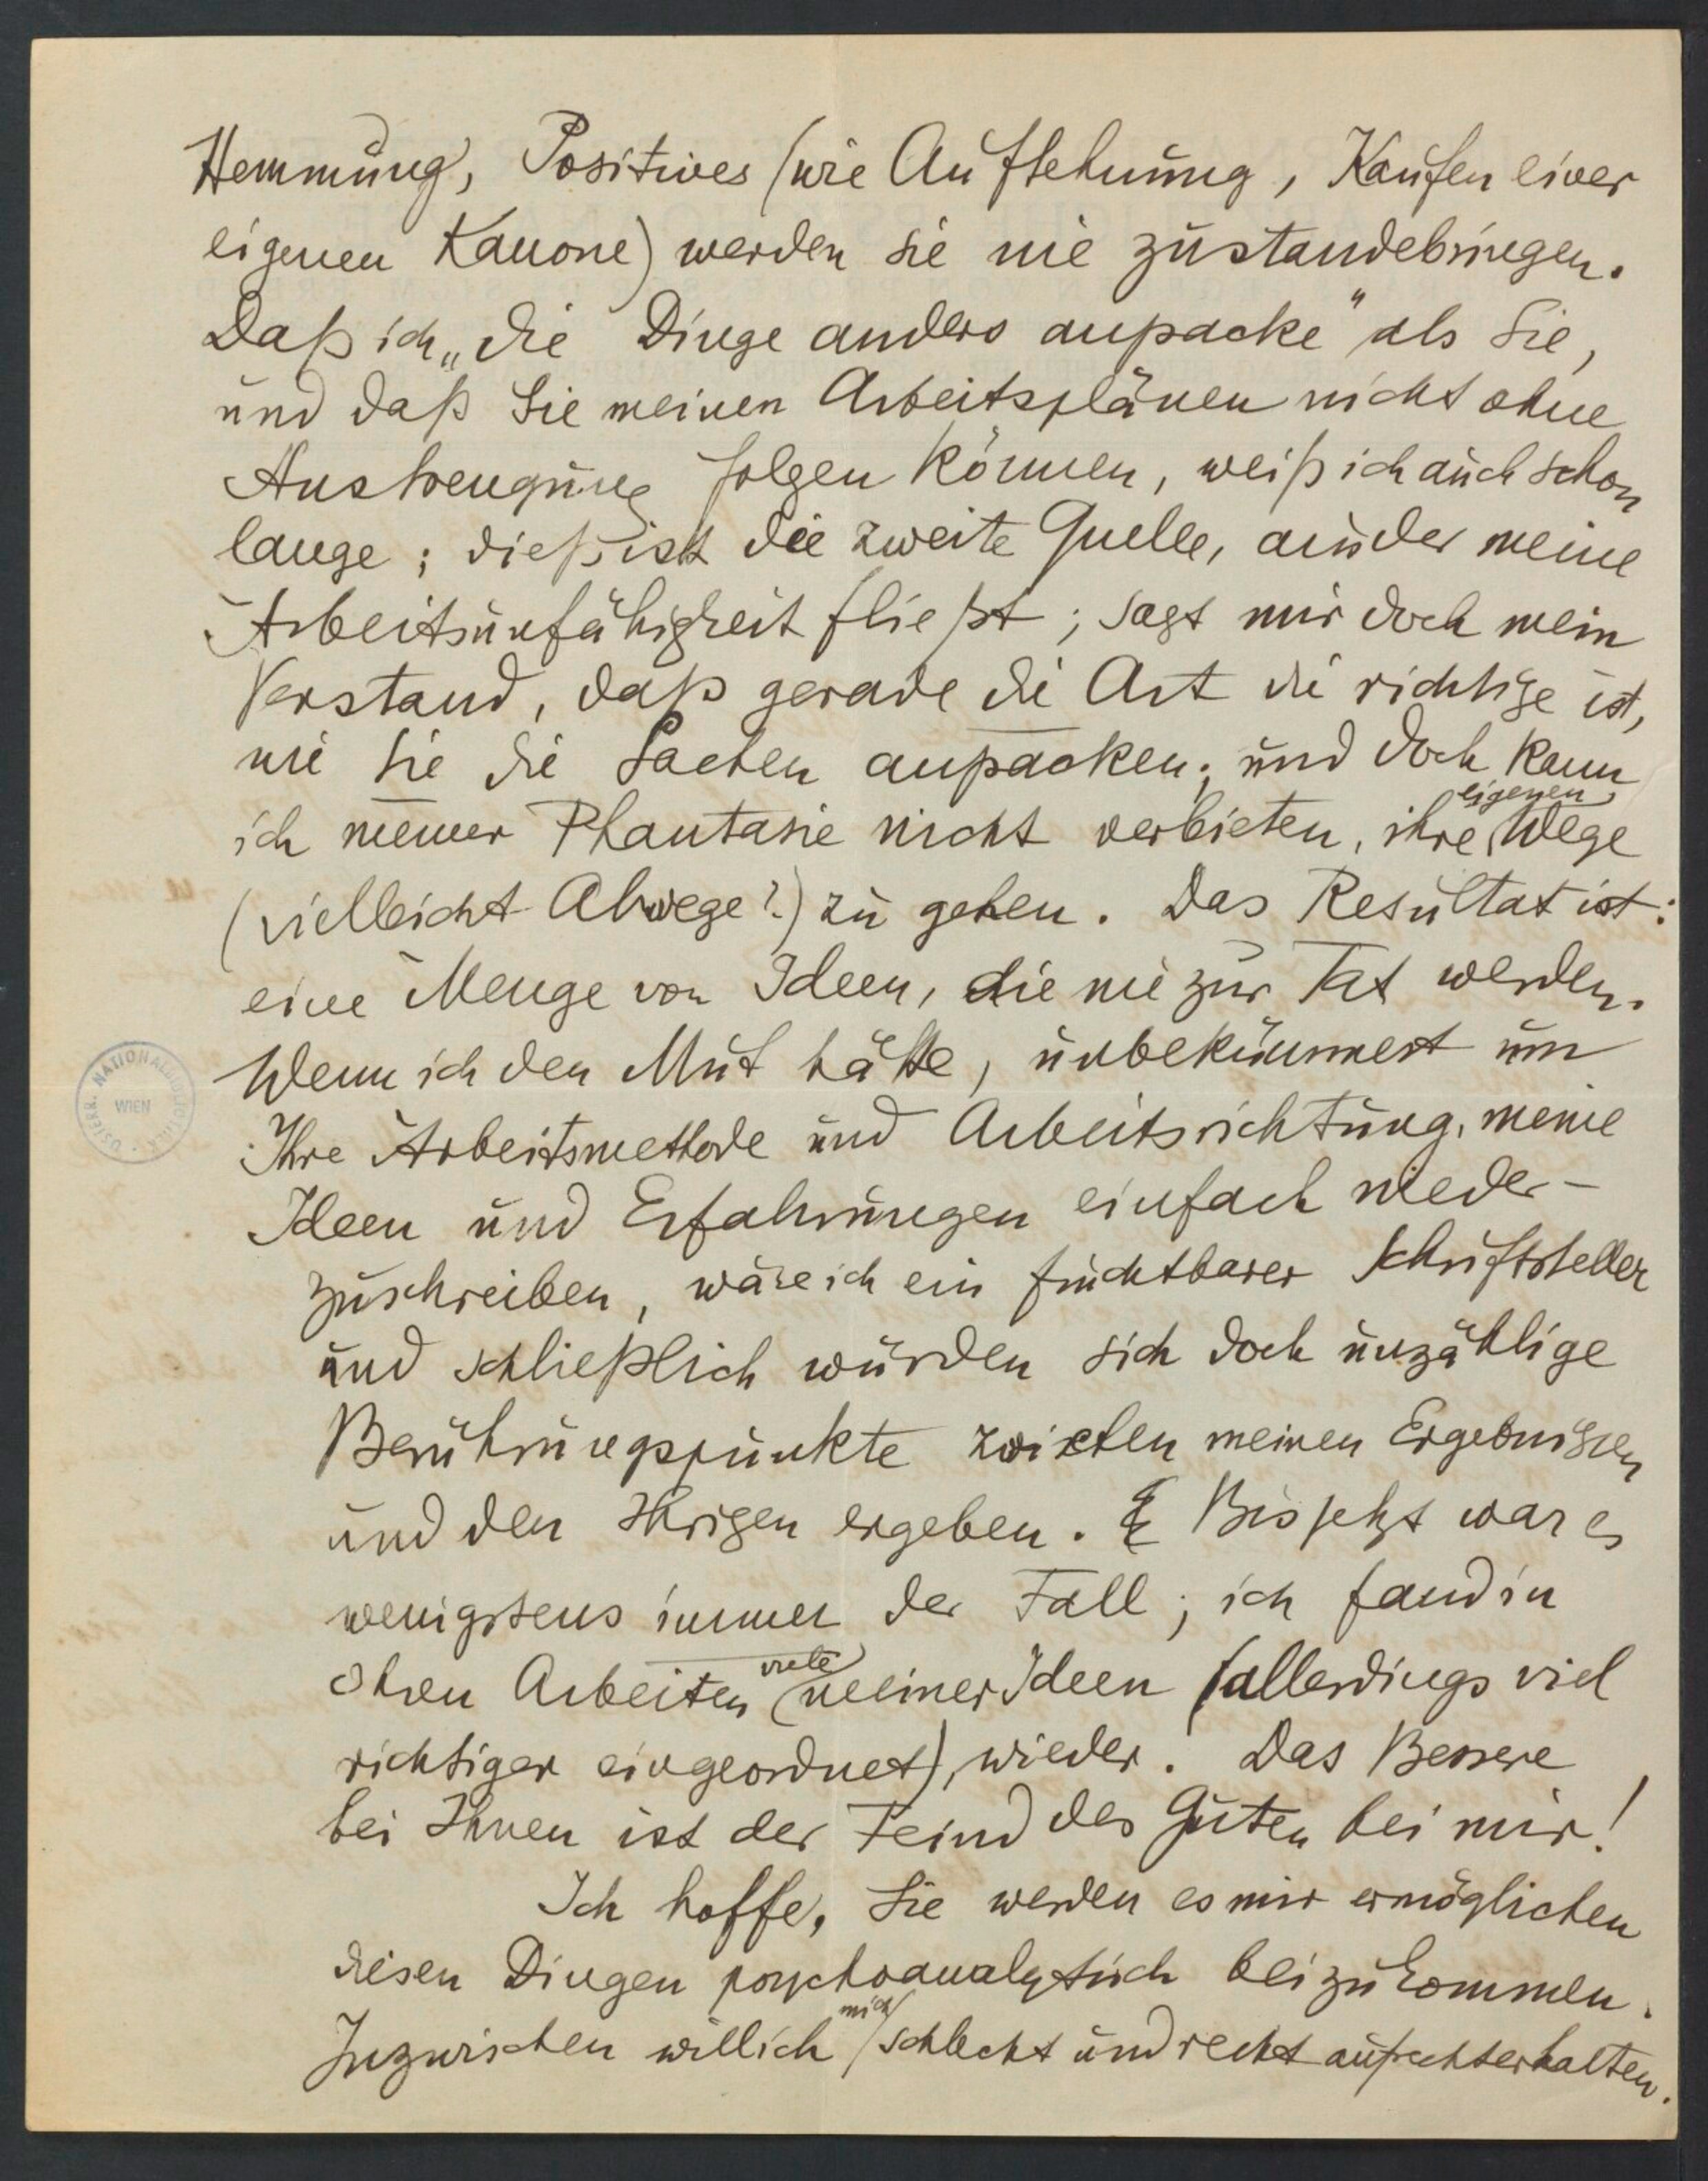 Hemmung, Positives (wie Auflehnung, Kaufen einer
eigenen Kanone) werden sie nie zustandebringen.
Daß ich „die Dinge anders anpacke" als Sie,
und daß Sie meinen Arbeitsplänen nicht ohne
Anstrengung folgen können, weiß ich auch schon
lange; dieß ist die zweite Quelle, aus der meine
Arbeitsunfähigkeit fließt; sagt mir doch mein
Verstand, daß gerade die Art die richtige ist,
wie Sie die Sachen anpacken; und doch kann
ich meiner Phantasie nicht verbieten, ihre eigenen Wege
(vielleicht Abwege?) zu gehen. Das Resultat ist:
eine Menge von Ideen, die nie zur Tat werden.
Wenn ich den Mut hätte, unbekümmert um
Ihre Arbeitsmethode und Arbeitsrichtung, meine
Ideen und Erfahrungen einfach nieder-
zuschreiben, wäre ich ein fruchtbarer Schriftsteller
und schließlich würden sich doch unzählige
Berührungspunkte zwischen meinen Ergebnissen
und den Ihrigen ergeben. Bis jetzt war es
wenigstens immer der Fall; ich fand in
Ihren Arbeiten viele meiner Ideen (allerdings viel
richtiger eingeordnet), wieder. Das Bessere
bei Ihnen ist der Feind des Guten bei mir!
Ich hoffe, Sie werden es mir ermöglichen
diesen Dingen psychoanalytisch beizukommen.
Inzwischen will ich mich schlecht und recht aufrechterhalten.
ÖSTERR. NATIONALBIBLIOTHEK
WIEN